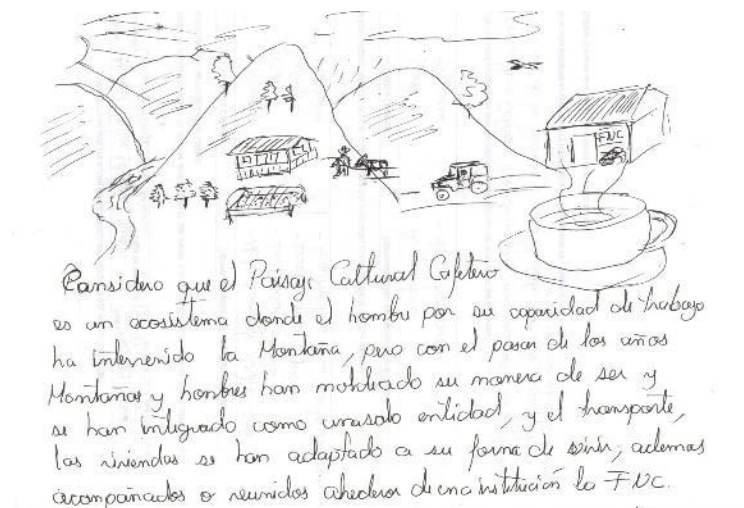 FNC
Considero que el Paisaje Cultural Cafetero
es un ecosistema donde el hombre por su capacidad de trabajo
ha intervenido la Montaña, pero con el pasar de los años
Montañas y hombres han moldeado su manera de ser y
se han integrado como una sola entidad, y el transporte,
las viviendas se han adaptado a su forma de vivir, ademas
acompañados o reunidos alrededor de una institución la FNC.